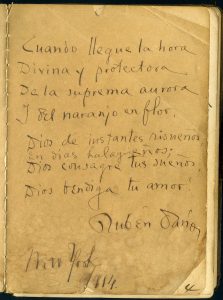 Cuando llegue la hora
Divina y protectora
De la suprema aurora
I del naranjo en flor,
Dios de instantes risueños
en días halagüeños;
Dios consagre tus sueños,
Dios bendiga tu amor.
Rubén Darío
New York
1914
4